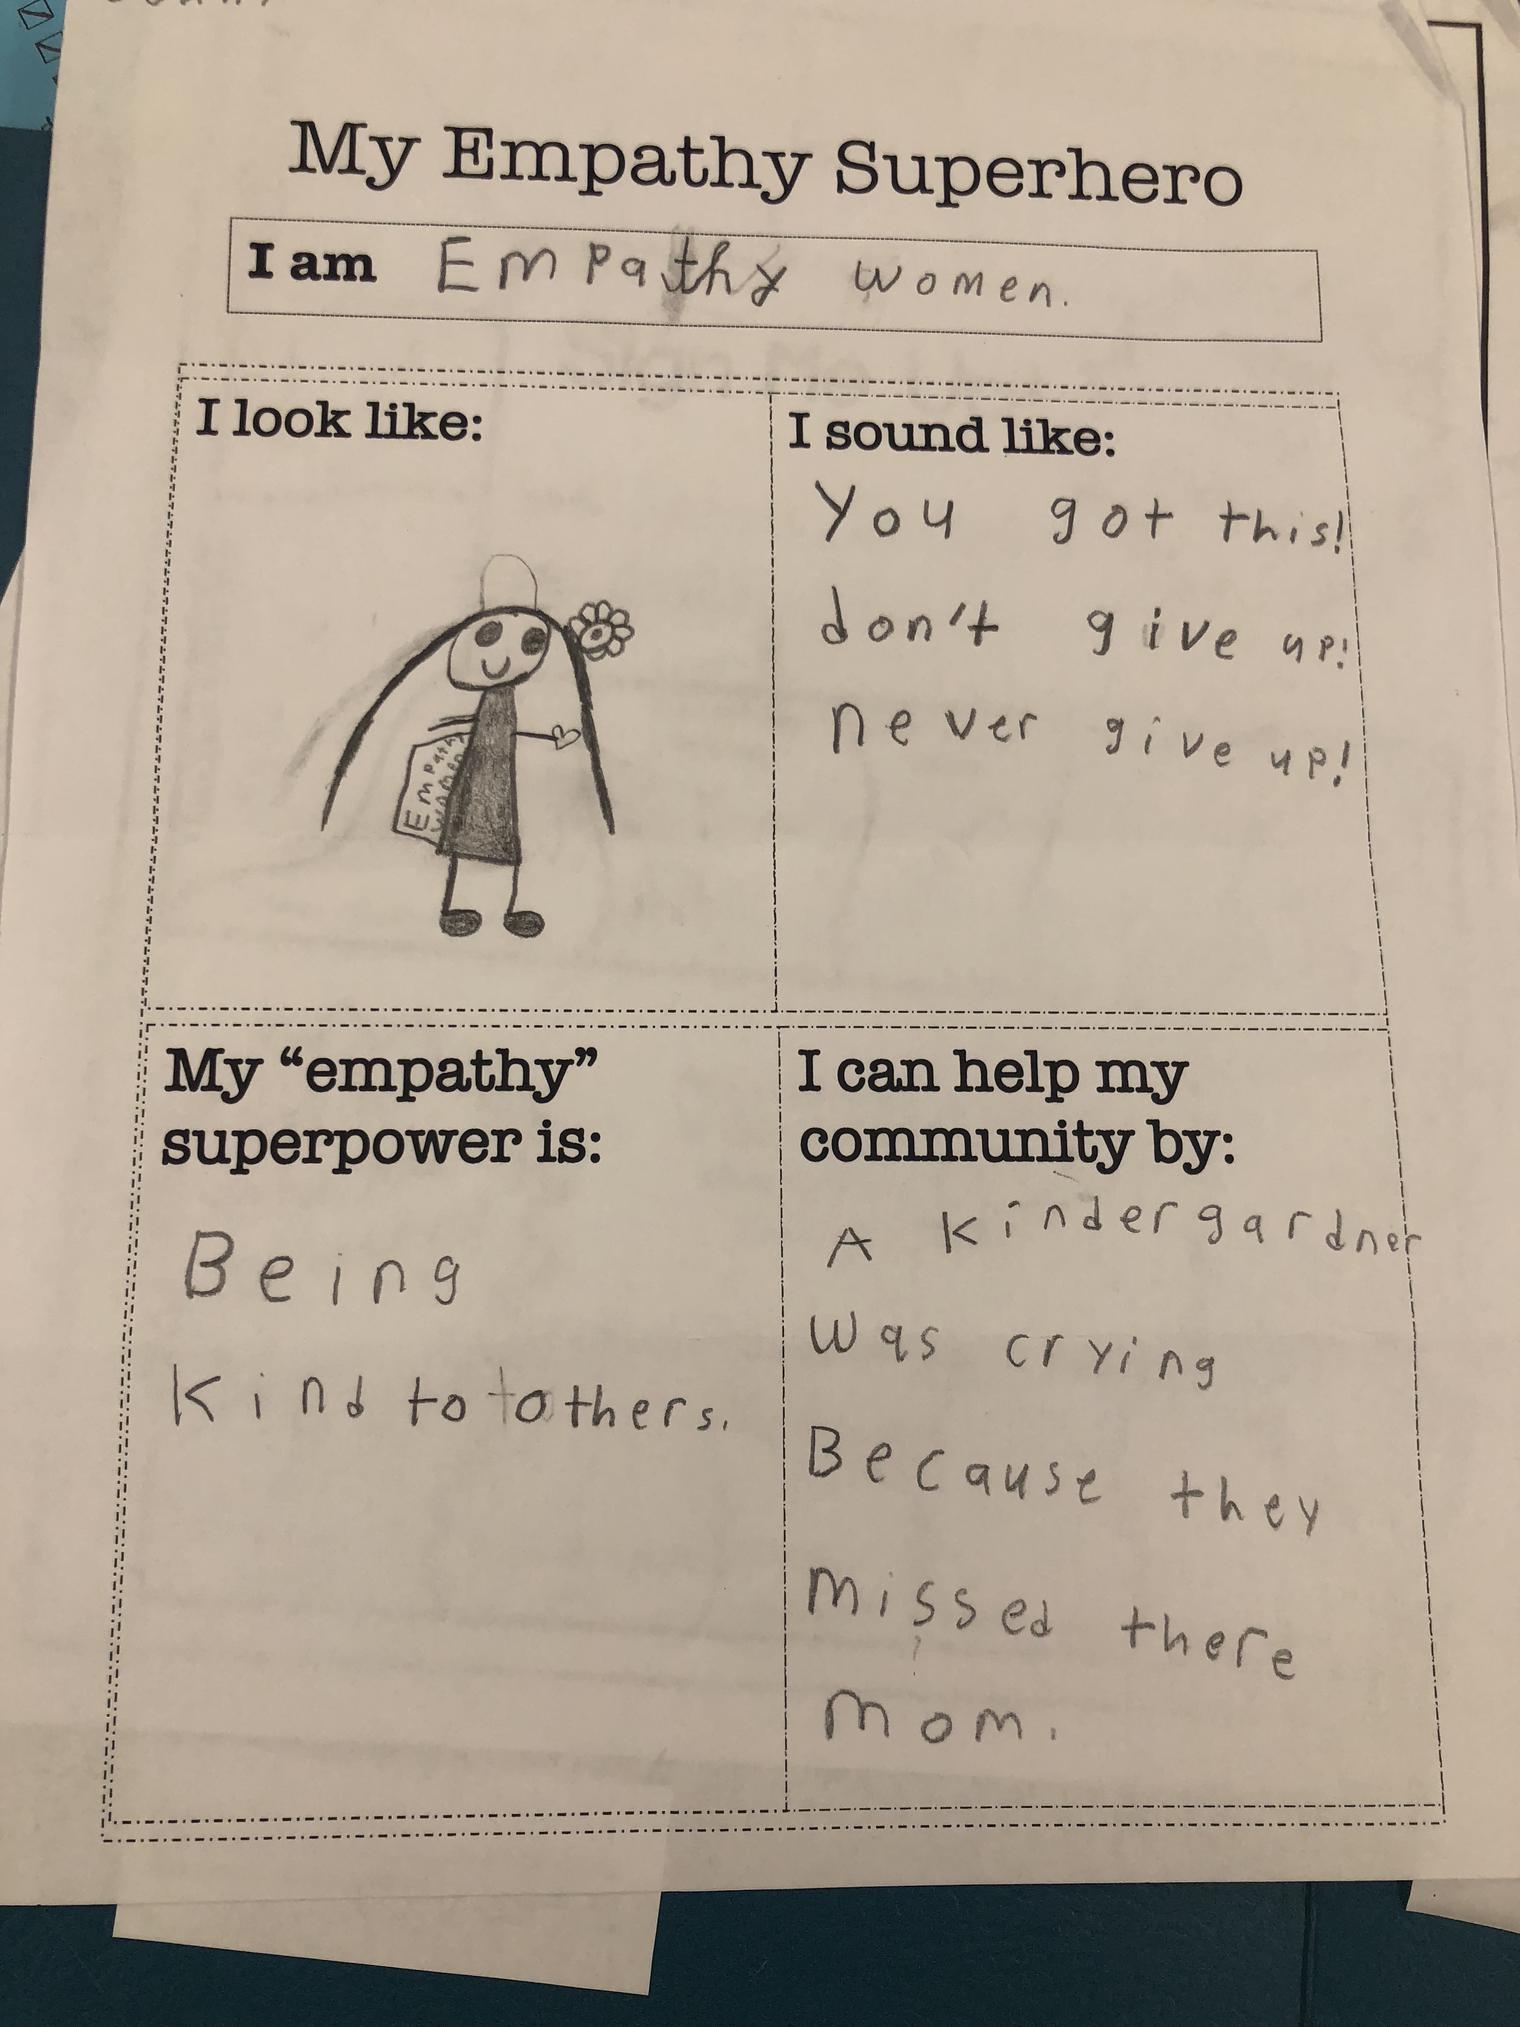 My Empathy Superhero
I am Empathy women.
I look like:
Empathy
women
I sound like:
You got this!
don't give up!
never give up!
My “empathy”
superpower is:
Being
Kind to to others.
I can help my
community by:
A Kindergardner
was crying
Because they
missed there
mom.